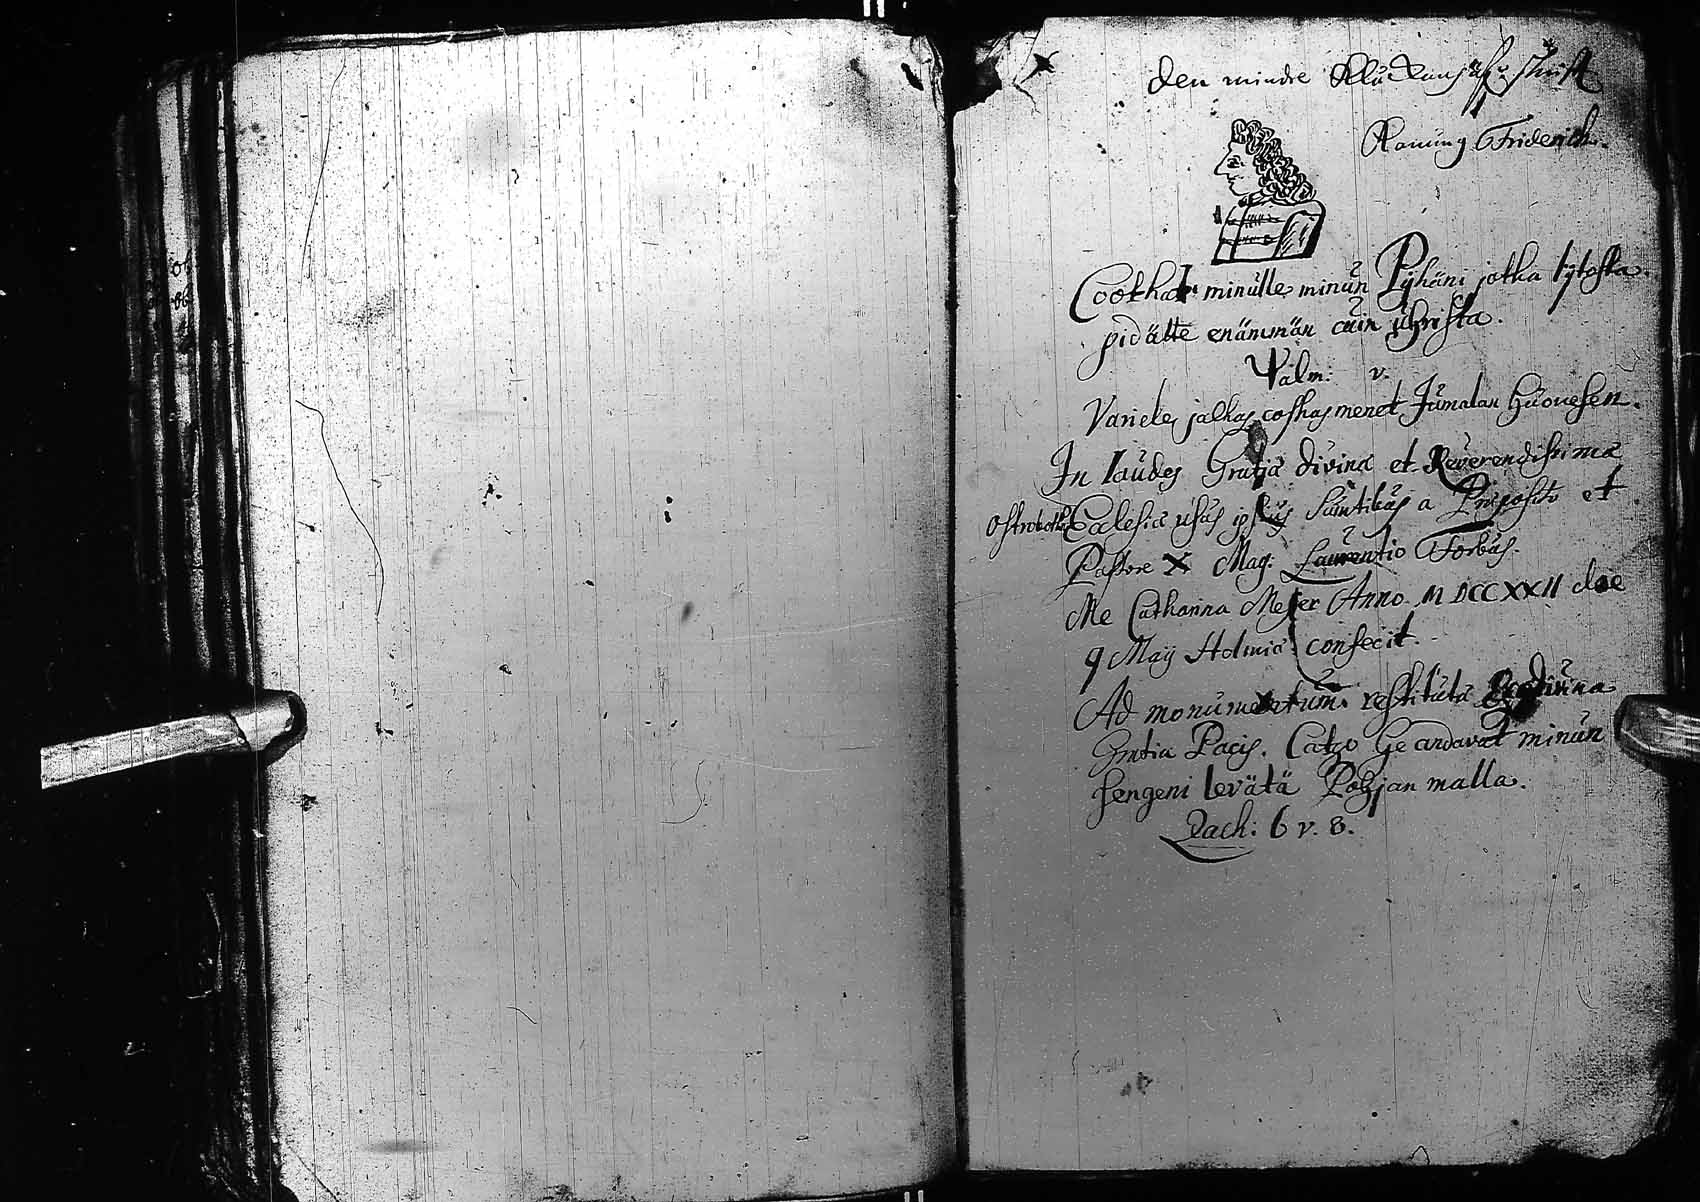 den mindre Kluckans öfwerskrift
Konung Friderich.
Cootkat minulle minun Pyhäni jotka lijtosta
pidätte enämmän cuin Uhrista.
Psalm: v.
Varjele jalkas coskas menet Jumalan Huonesen.
In laudes Gratiæ divinæ et Reverendissimæ
Ostroboth Ecclesiæ usus ipsius Sumtibus a Præposito et
Pastore Mag: Laurentio Forbus.
Me Catharina Meyer Anno MDCCXXII die
9 Maij Holmiæ confecit.
Ad monumentum restituta divina
Gratia Pacis. Catzo he andavat minun
Hengeni levätä Pohjan malla.
Zach: 6 v. 8.